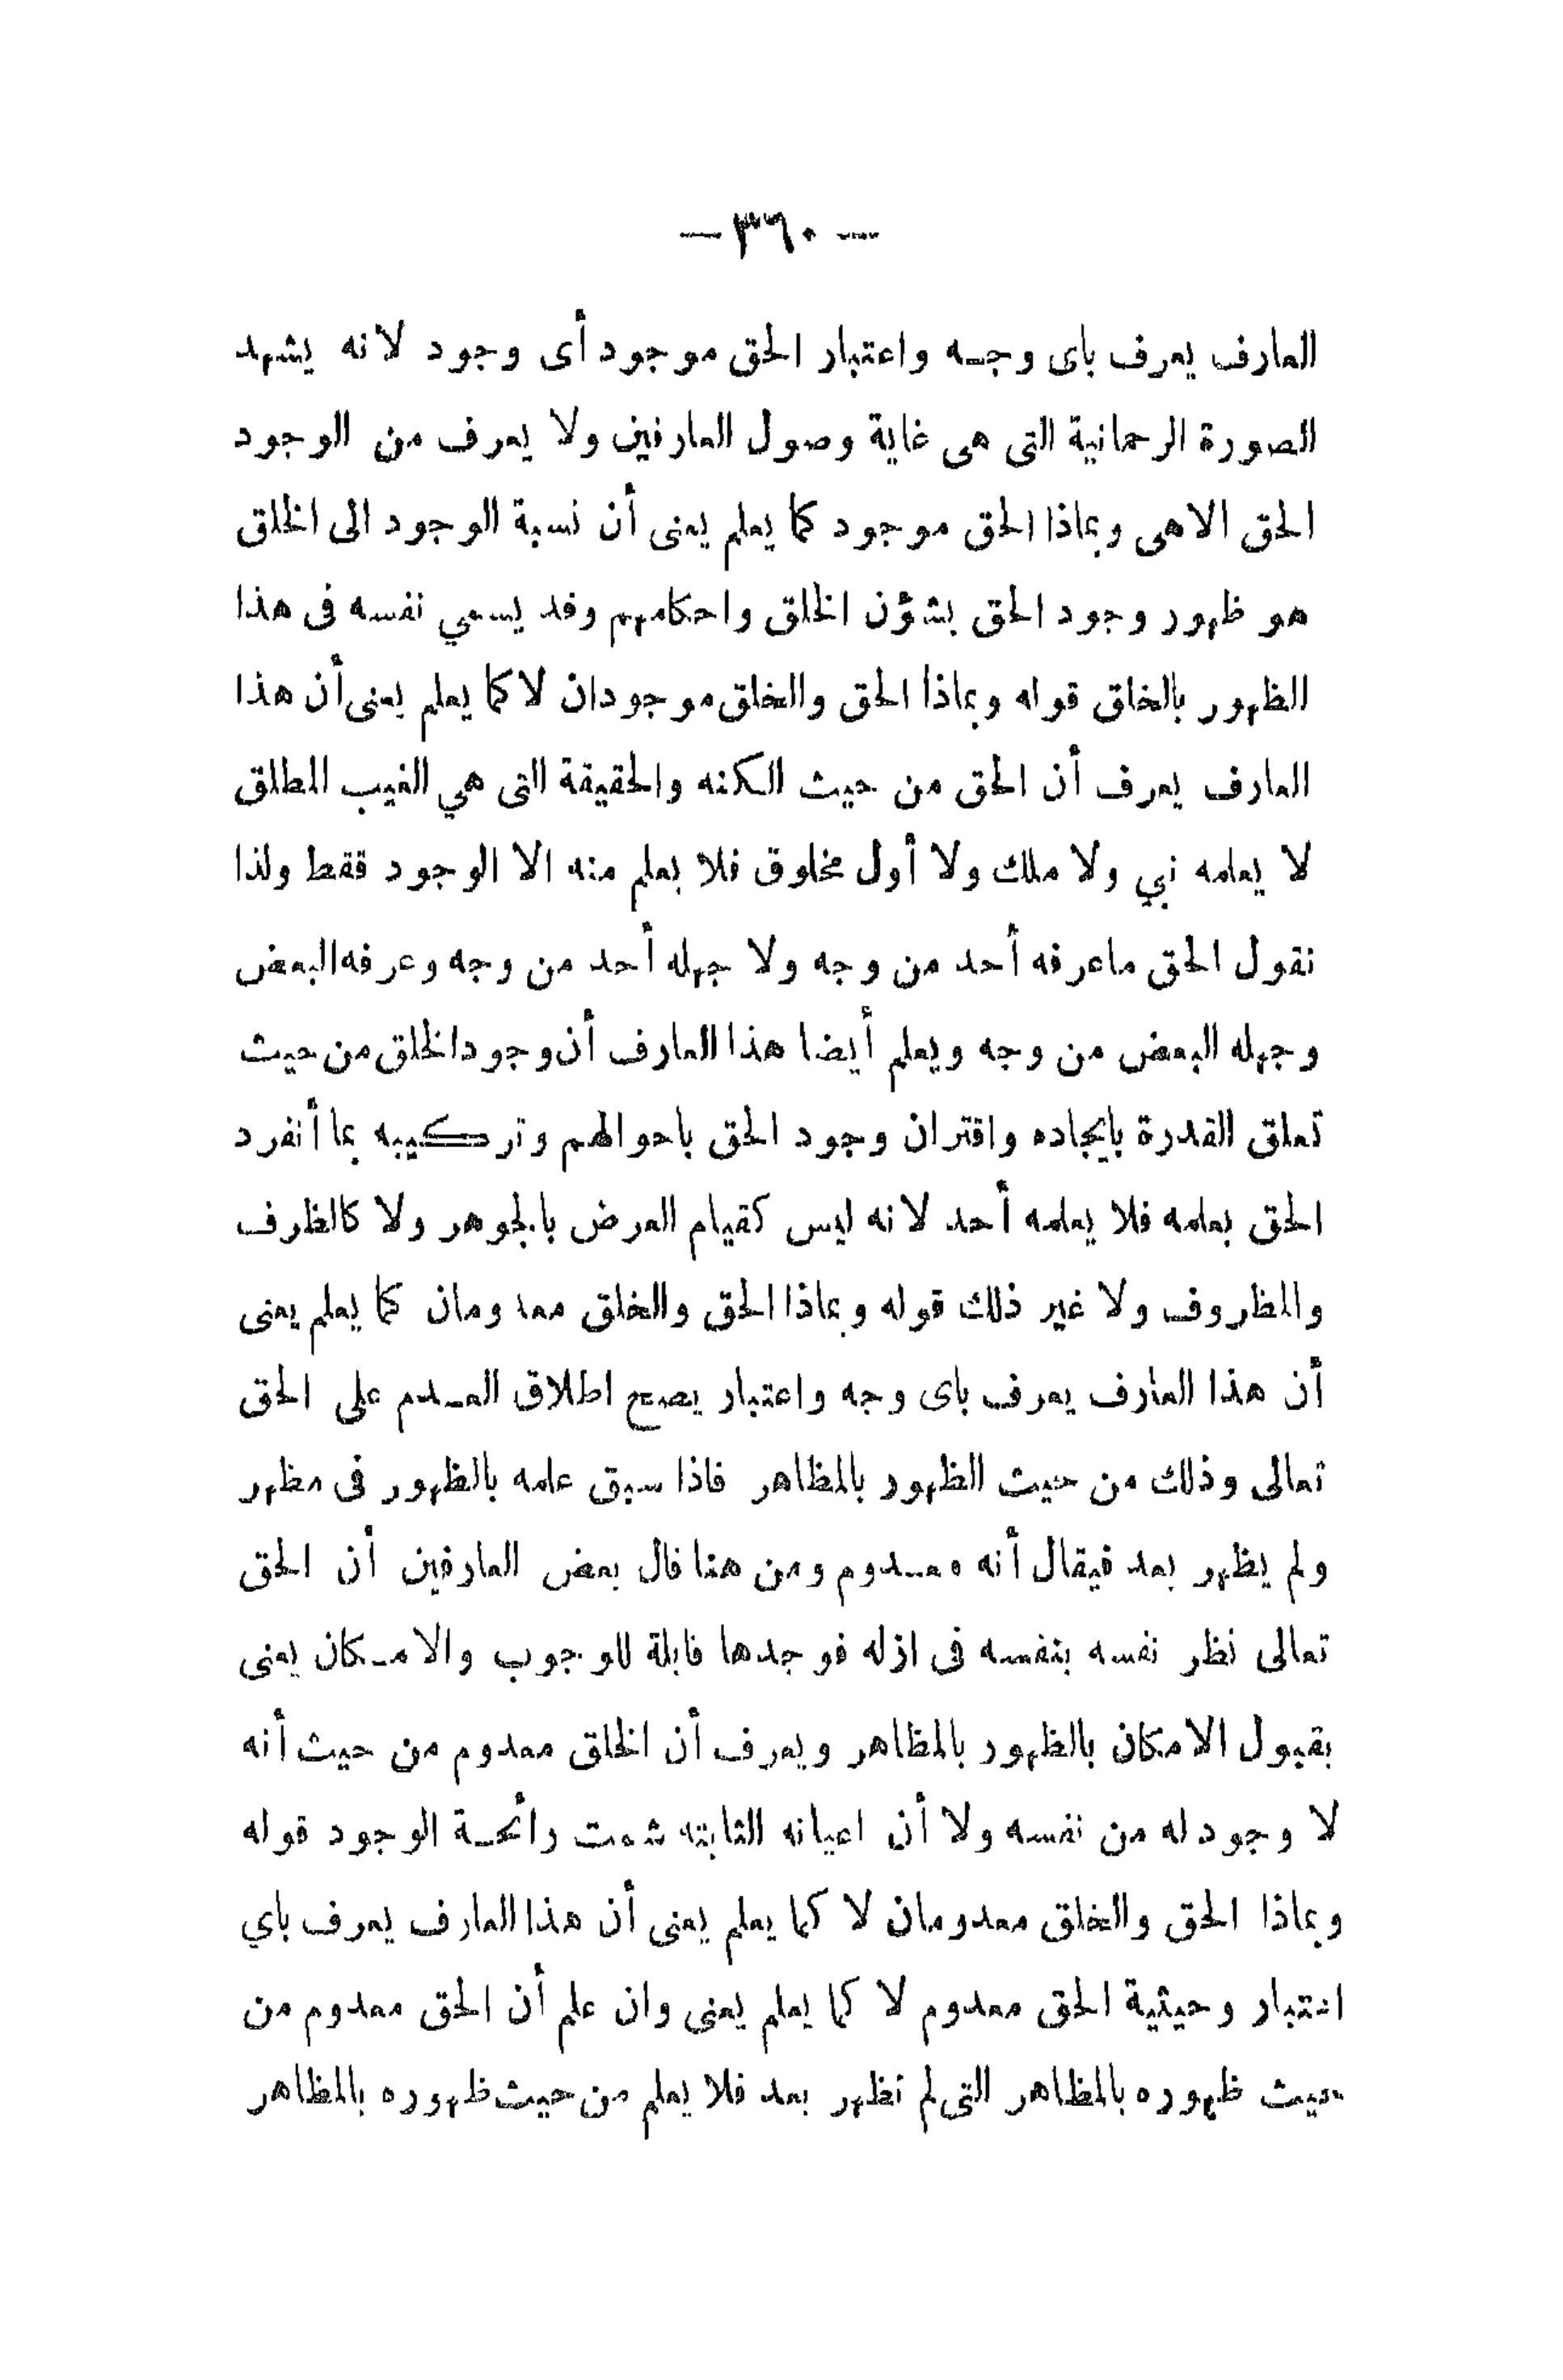 — ٣٦٠ —
العارف يعرف باى وجه واعتبار الحق موجود أى وجود لانه يشهد
الصورة الرحمانية التى هى غاية وصول العارفين ولا يعرف من الوجود
الحق الاهى وبماذا الحق موجود كما يعلم يعنى أن نسبة الوجود الى الخلق
هو ظهور وجود الحق بشؤن الخلق واحكامهم وقد يسمي نفسه فى هذا
الظهور بالخلق قوله وبماذا الحق والخلق موجودان لا كما يعلم يعنى أن هذا
العارف يعرف أن الحق من حيث الكنه والحقيقة التى هي الغيب المطلق
لا يعلمه نبي ولا ملك ولا أول مخلوق فلا يعلم منه الا الوجود فقط ولذا
نقول الحق ماعرفه أحد من وجه ولا جهله أحد من وجه وعرفه البعض
وجهله البعض من وجه ويعلم أيضا هذا العارف أن وجود الخلق من حيث
تعلق القدرة بايجاده واقتران وجود الحق باحوالهم وتركيبه بما أنفرد
الحق بعلمه فلا يعلمه أحد لانه ليس كقيام العرض بالجوهر ولا كالظرف
والمظروف ولا غير ذلك قوله وبماذا الحق والخلق معدومان كما يعلم يعنى
أن هذا العارف يعرف باى وجه واعتبار يصح اطلاق العدم على الحق
تعالى وذلك من حيث الظهور بالمظاهر فاذا سبق علمه بالظهور فى مظهر
ولم يظهر بعد فيقال أنه معدوم ومن هنا قال بعض العارفين أن الحق
تعالى نظر نفسه بنفسه فى ازله فوجدها قابلة للوجوب والامكان يعنى
بقبول الامكان بالظهور بالمظاهر ويعرف أن الخلق معدوم من حيث أنه
لا وجود له من نفسه ولا أن اعيانه الثابته شمت رائحة الوجود قوله
وبماذا الحق والخلق معدومان لا كما يعلم يعنى أن هذا العارف يعرف باي
اعتبار وحيثية الحق معدوم لا كما يعلم يعنى وان علم أن الحق معدوم من
حيث ظهوره بالمظاهر التى لم تظهر بعد فلا يعلم من حيث ظهوره بالمظاهر